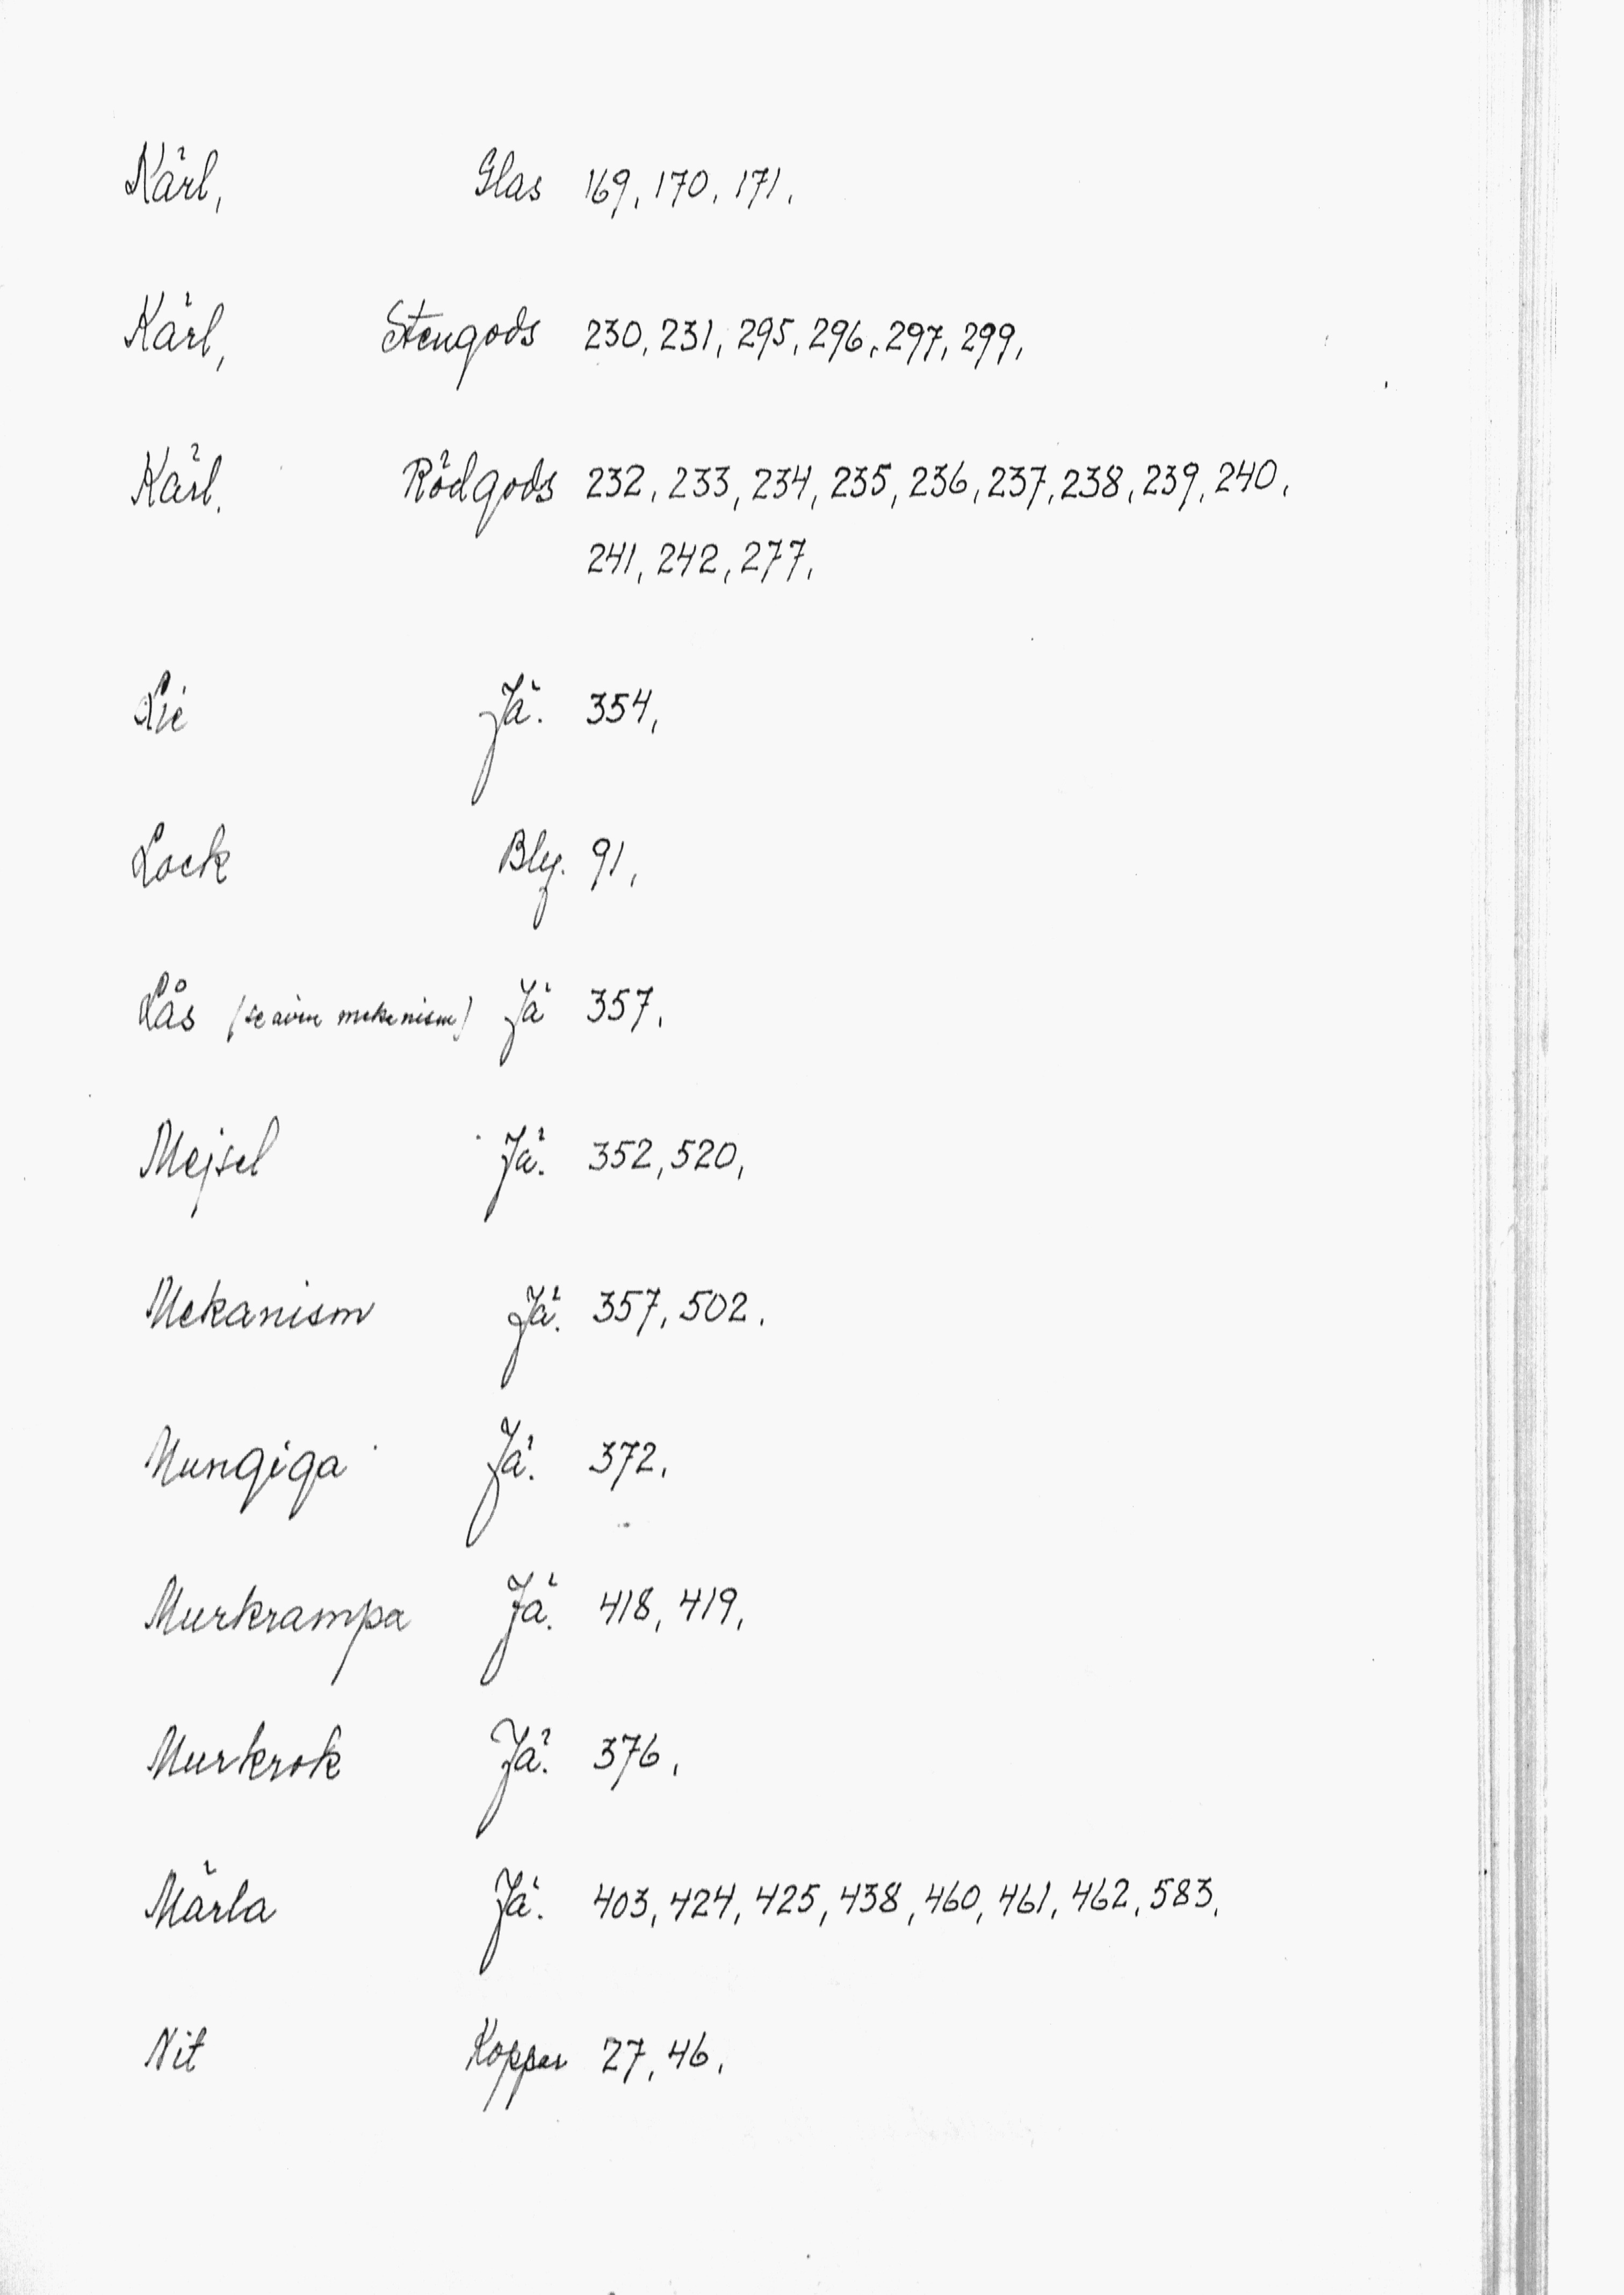 Kärl, Glas 169, 170, 171,
Kärl, Stengods 230, 231, 295, 296, 297, 299,
Kärl. Rödgods 232, 233, 234, 235, 236, 237, 238, 239, 240,
241, 242, 277,
Lie Jä. 354,
Lock Bly. 91,
Lås (se även mekanism) Jä 357,
Mejsel Jä. 352, 520,
Mekanism Jä. 357, 502.
Mungiga Jä. 372,
Murkrampa Jä. 418, 419,
Murkrok Jä. 376,
Märla Jä. 403, 424, 425, 438, 460, 461, 462, 583,
Nit Koppar 27, 46,